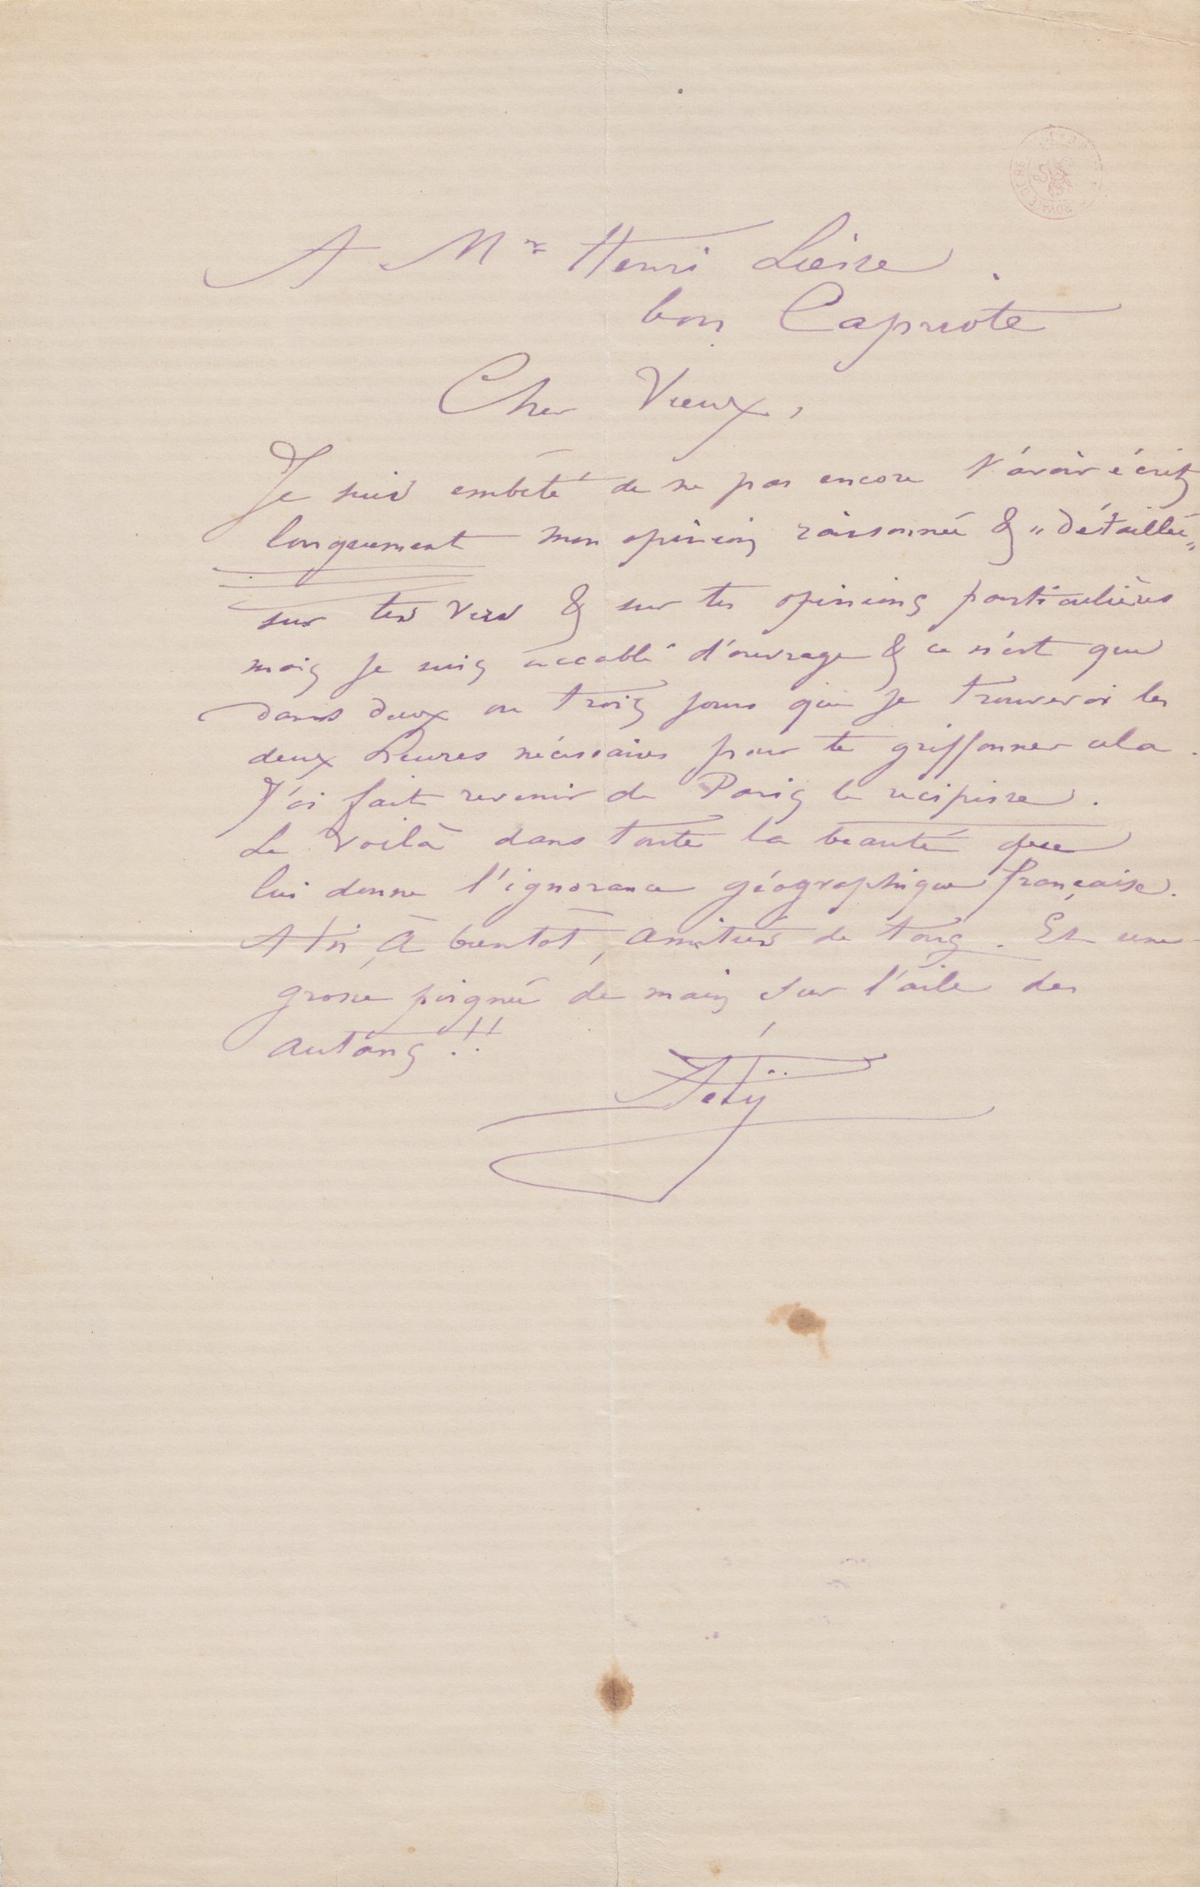 A Mr Henri Liesse.
bon Capriote
Cher Vieux,
Je suis embêté de ne pas encore t'avoir écrit
longuement mon opinion raisonnée & "détaillée"
sur tes vers & sur tes opinions particulières
mais je suis accablé d'ouvrage & ce n'est que
dans deux ou trois jours que je trouverai les
deux heures nécessaires pour te griffonner cela.
J'ai fait revenir de Paris le récipissé.
Le voilà dans toute la beauté que
lui donne l'ignorance géographique française.
à bientôt, amitiés de tous. Et une
grosse poignée de main sur l'aile des
autans !!
Fély